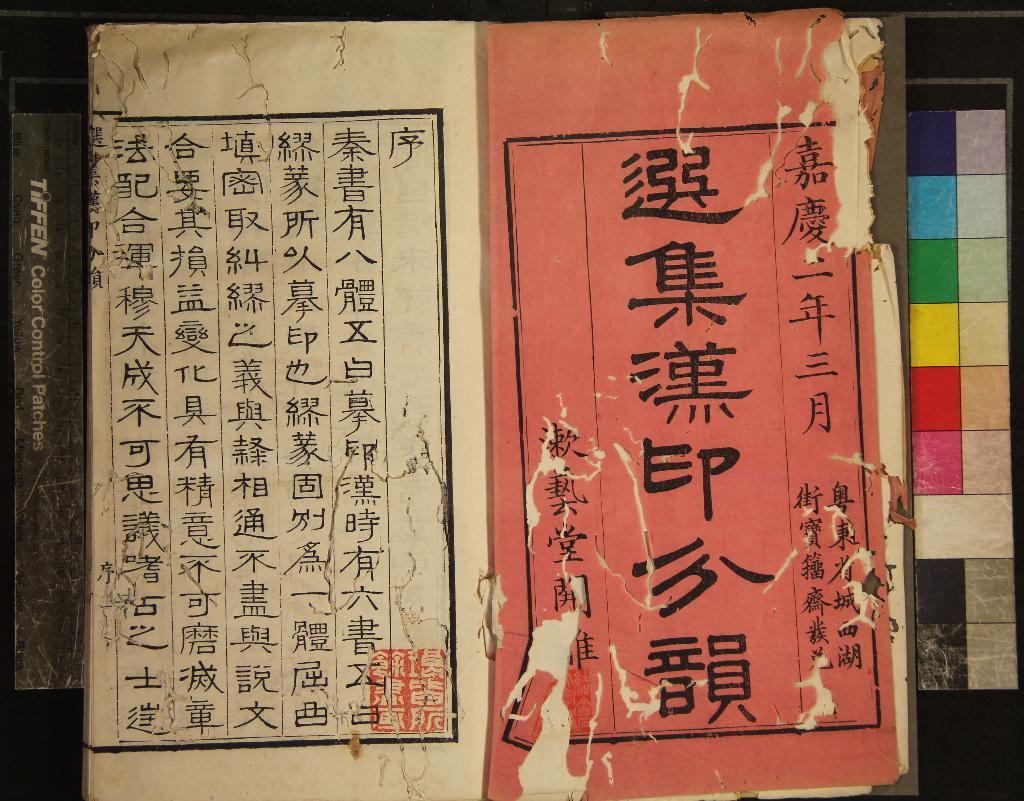 嘉慶二年三月
粤東省城西湖
街寶籀齋發兌
選集漢印分韻
漱藝堂開雕
序
秦書有八體五曰摹印漢時有六書五曰
繆篆所以摹印也繆篆固別為一體屈曲
填密取糾繆之義與隸相通不盡與說文
合要其損益變化具有精意不可磨滅章
法配合渾穆天成不可思議嗜古之士往
選集漢印分韻
序
TIFFEN Color Control Patches
Blue
Cyan
Green
Yellow